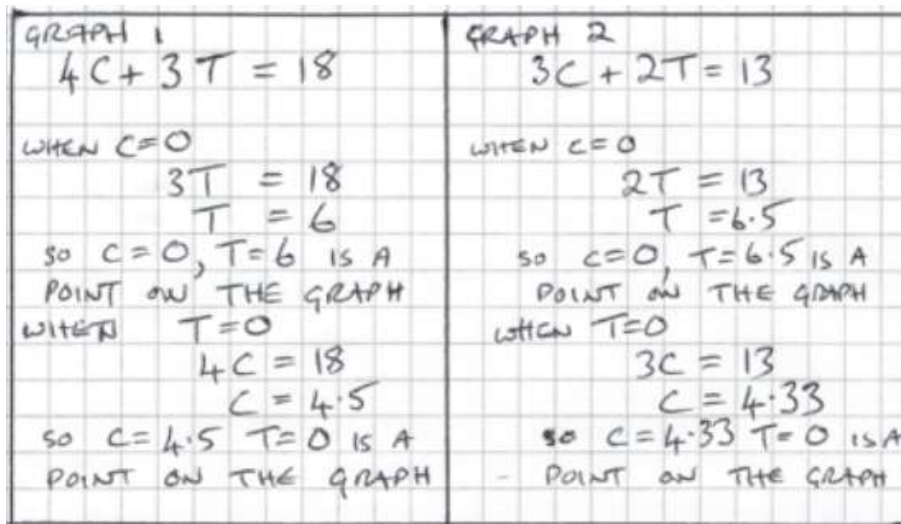 GRAPH 1
4C + 3T = 18
WHEN C=0
3T = 18
T = 6
SO C=0, T=6 IS A
POINT ON THE GRAPH
WHEN T=0
4C = 18
C = 4.5
SO C=4.5 T=0 IS A
POINT ON THE GRAPH
GRAPH 2
3C + 2T = 13
WHEN C=0
2T = 13
T = 6.5
SO C=0, T=6.5 IS A
POINT ON THE GRAPH
WHEN T=0
3C = 13
C = 4.33
SO C=4.33 T=0 IS A
POINT ON THE GRAPH